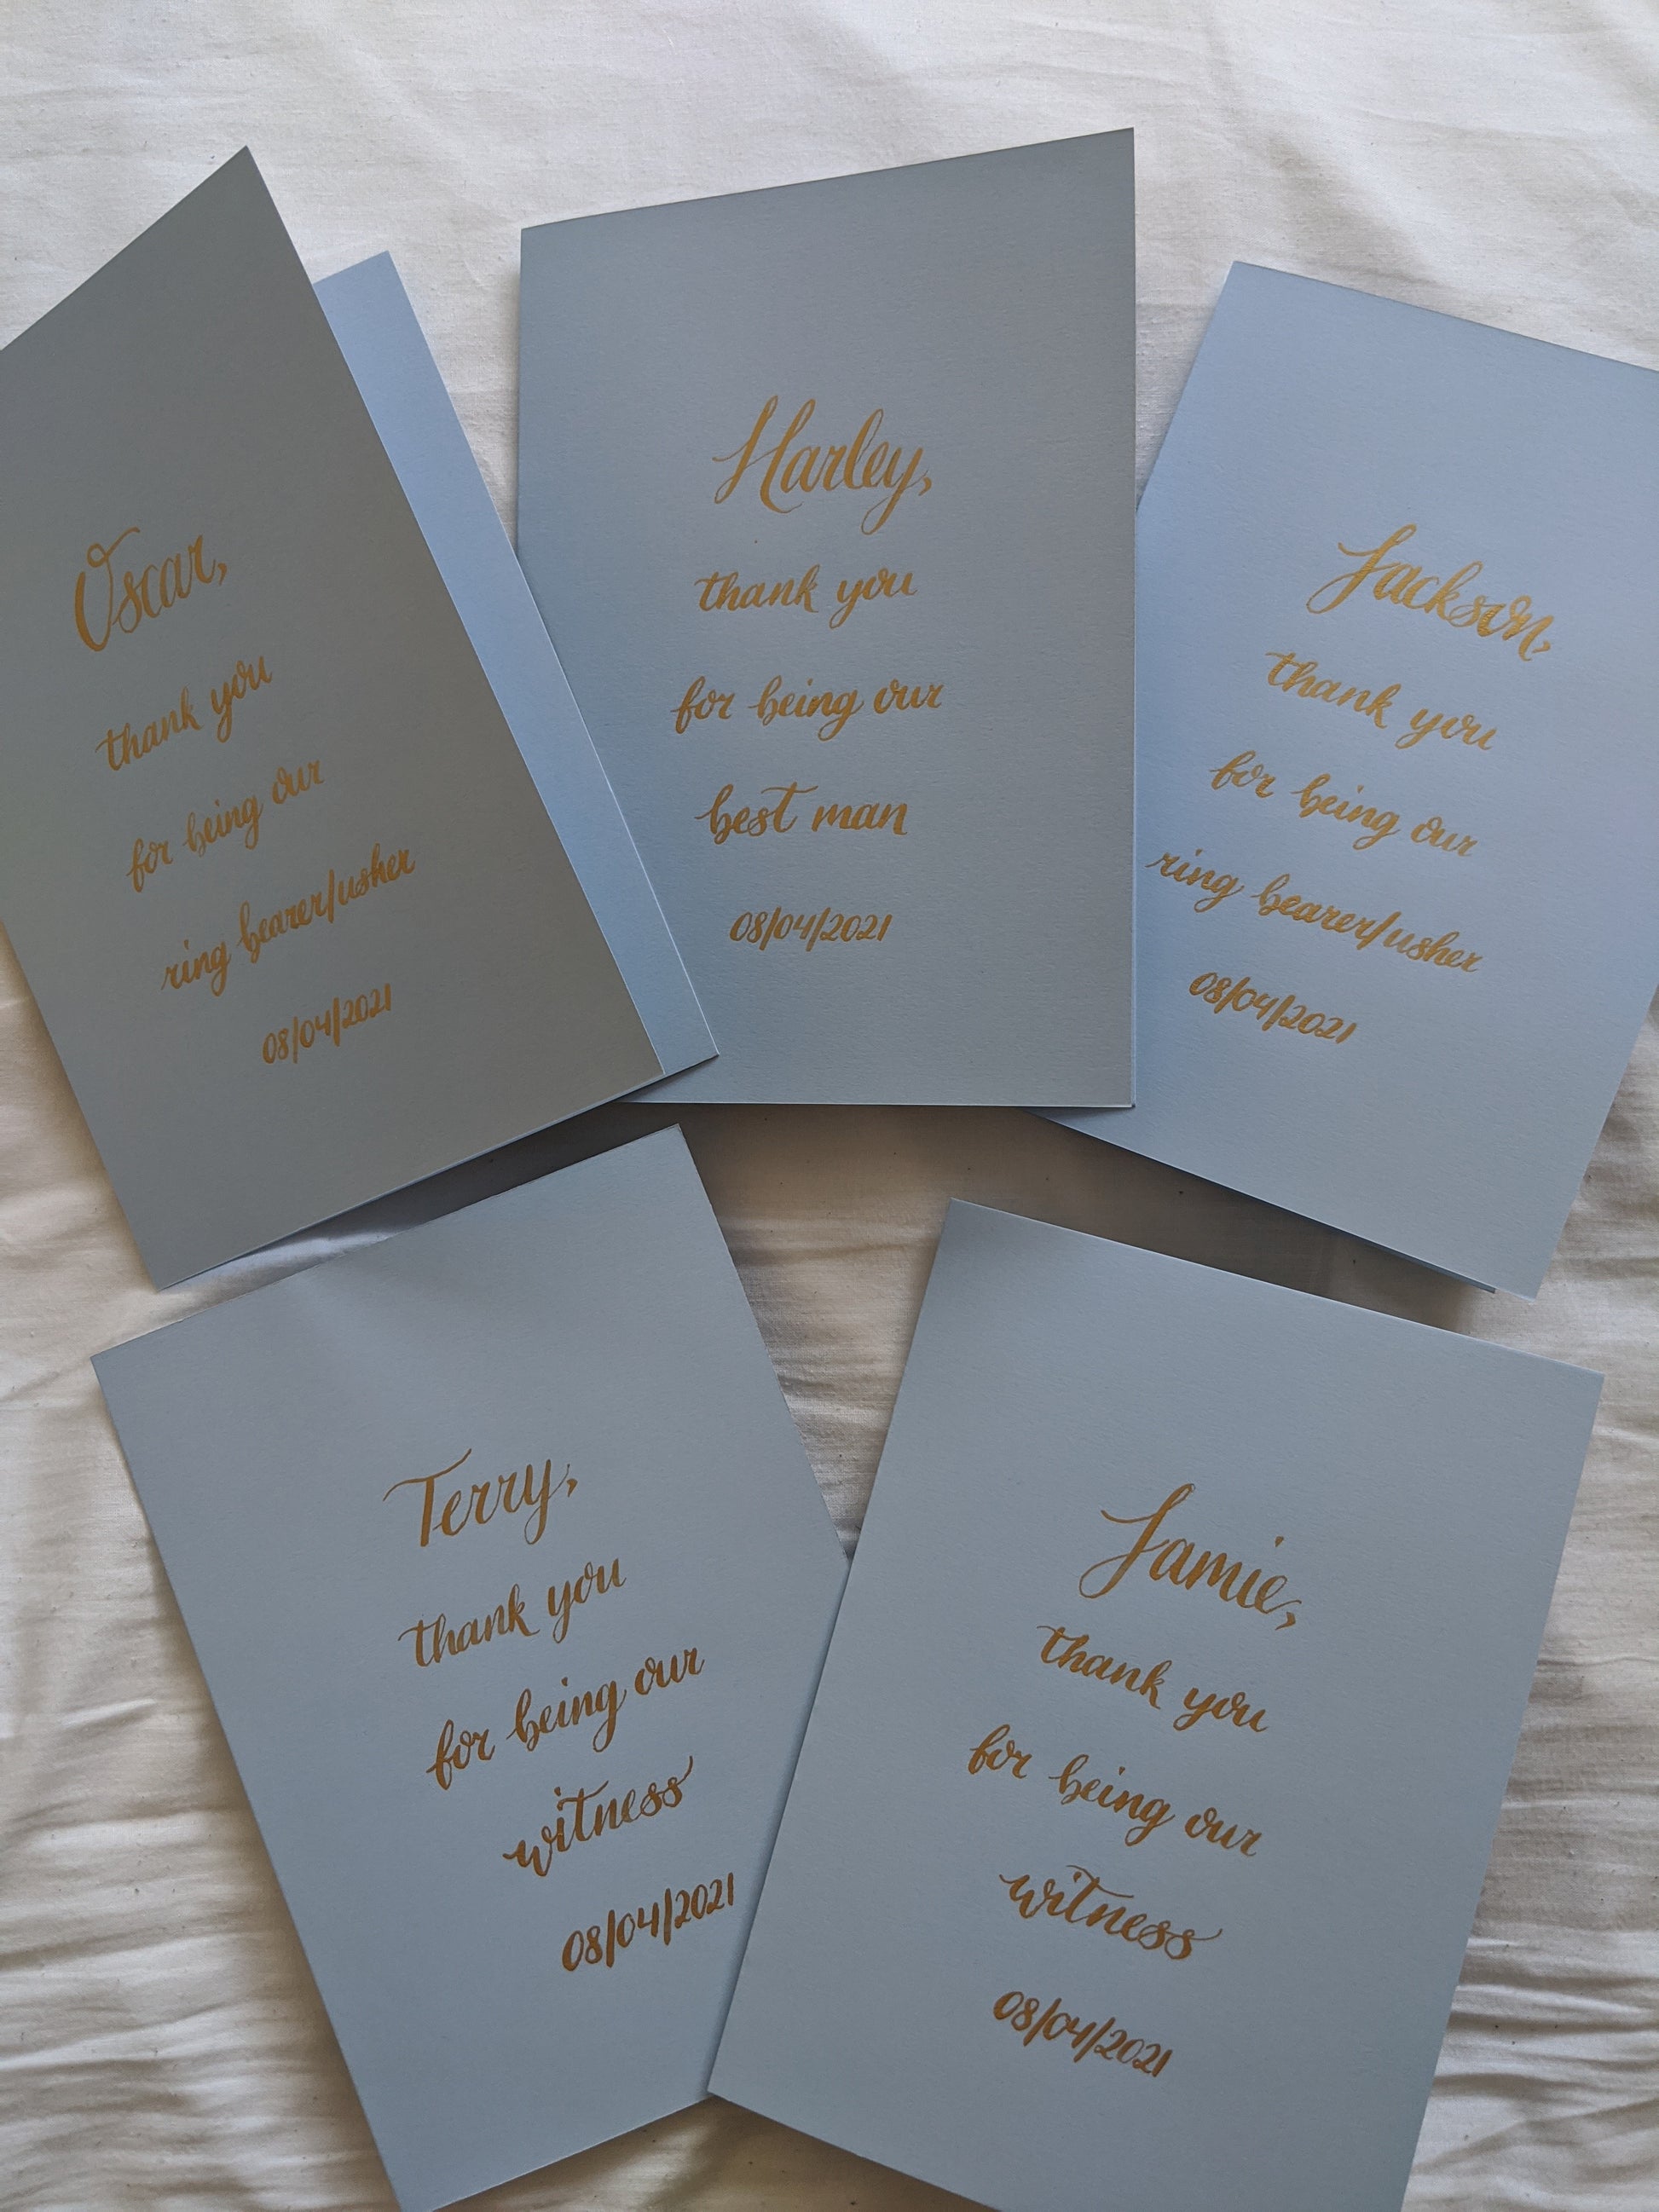 Oscar,
thank you
for being our
ring bearer/usher
08/04/2021
Harley,
thank you
for being our
best man
08/04/2021
Jackson,
thank you
for being our
ring bearer/usher
08/04/2021
Terry,
thank you
for being our
witness
08/04/2021
Jamie,
thank you
for being our
witness
08/04/2021